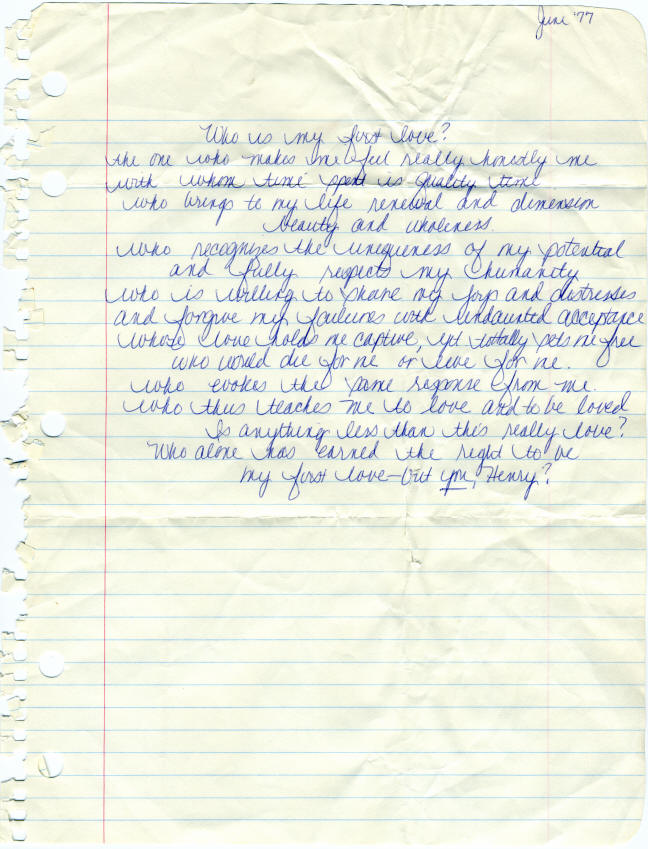 June '77
Who is my first love?
the one who makes me feel really honestly me
with whom time spent is quality time
who brings to my life renewal and dimension
beauty and wholeness.
who recognizes the uniqueness of my potential
and fully respects my humanity
who is willing to share my joys and distresses
and forgive my failures with undaunted acceptance
whose love holds me captive, yet totally sets me free
who would die for me or live for me.
who evokes the same response from me.
who thus teaches me to love and to be loved
Is anything less than this really love?
Who alone has earned the right to be
my first love—but you, Henry?